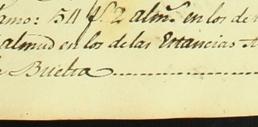 amo: 511 f.s 2 alm.s en los de
almud en los de las Estancias
Buelra